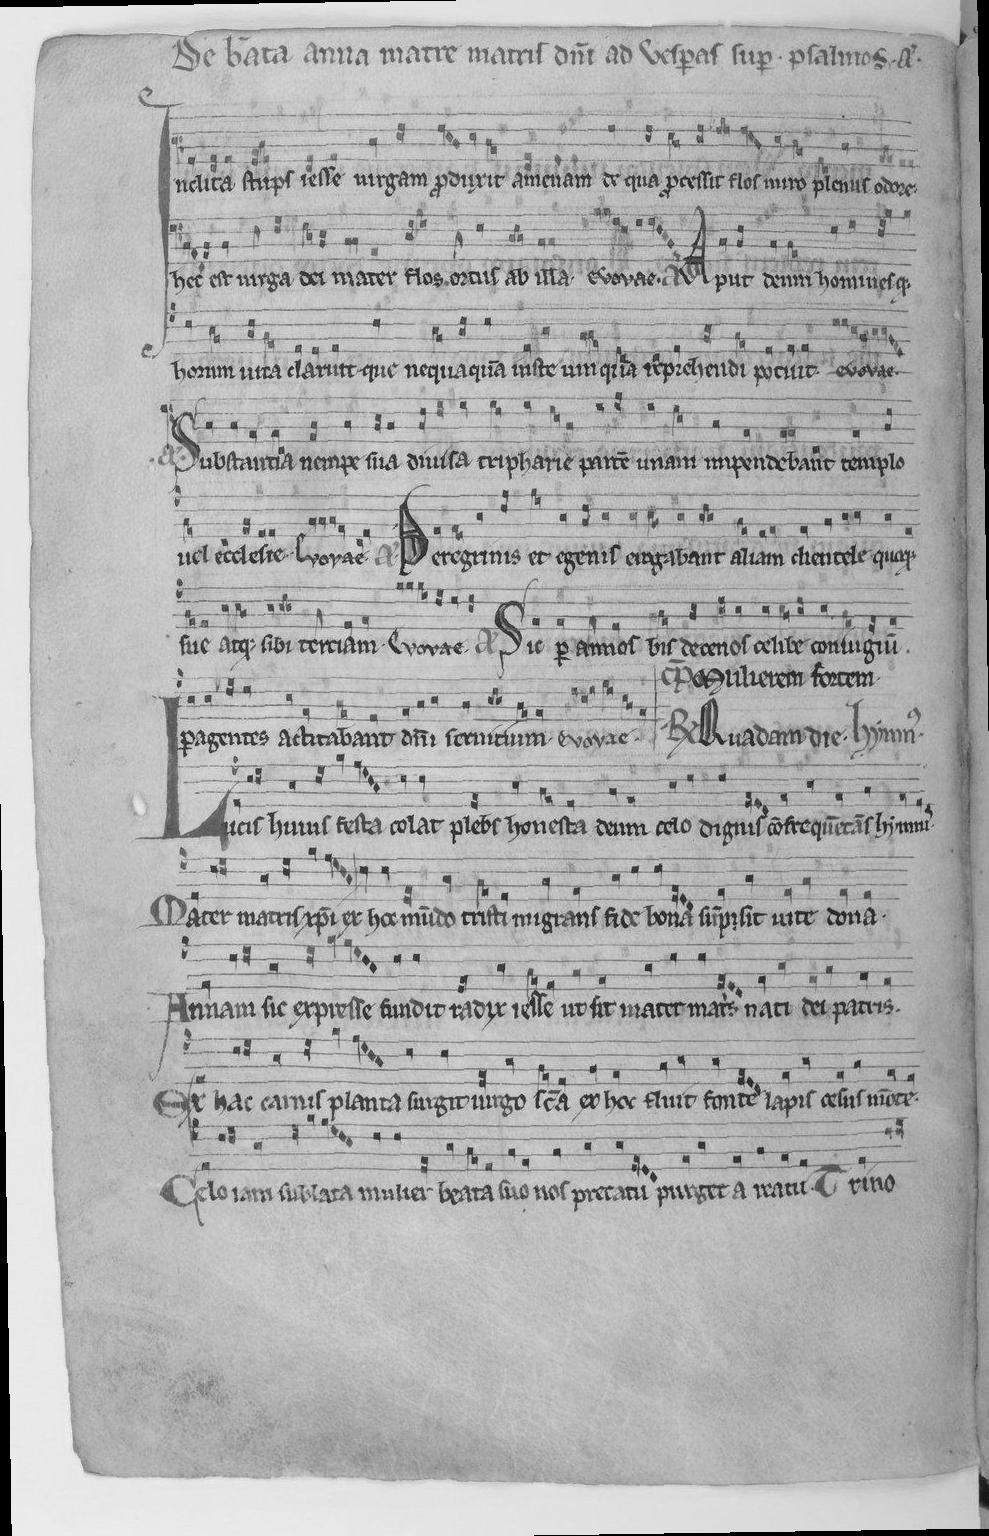 De b̄ata anna matre matris dn̄i ad vesꝑas suꝑ · psalmos · A͛ ·
Inclita stirps iesse uirgam ꝓduxit amenam de qua ꝓcessit flos miro plenus odore·
hec est uirga dei mater flos ortus ab illa · evovae · A͛ Aput deum homines qꝫ
horum uita claruit · que nequaquā iuste umquā reprehendi potuit · evovae ·
· A͛ Substantia nempe sua diuisa tripharie partē unam impendebant templo
uel ecclesie · Evovae · A͛ Peregrinis et egenis erogabant aliam clientele quoqꝫ
sue atqꝫ sibi terciam · Evovae · A͛ Sic ꝑ annos bis decenos celibe coniugiū ·
Cp̄ Mulierem fortem ·
ꝑagentes actitabant dn̄i seruitium · evovae · R̷ Quadam die · Hymnꝰ ·
Lucis huius festa colat plebs honesta deum celo dignis cōfrequētās hymnis ·
Mater matris xp̄i ex hoc mūdo tristi migrans fide bona sūpsit uite dona ·
Annam sic expresse fundit radix iesse ut sit mater mat͛s nati dei patris ·
Ex hac carnis planta surgit uirgo sc̄a ex hoc fluit fonte lapis cesus mōte ·
Celo iam sublata mulier beata suo nos precatu purget a reatu · Trino